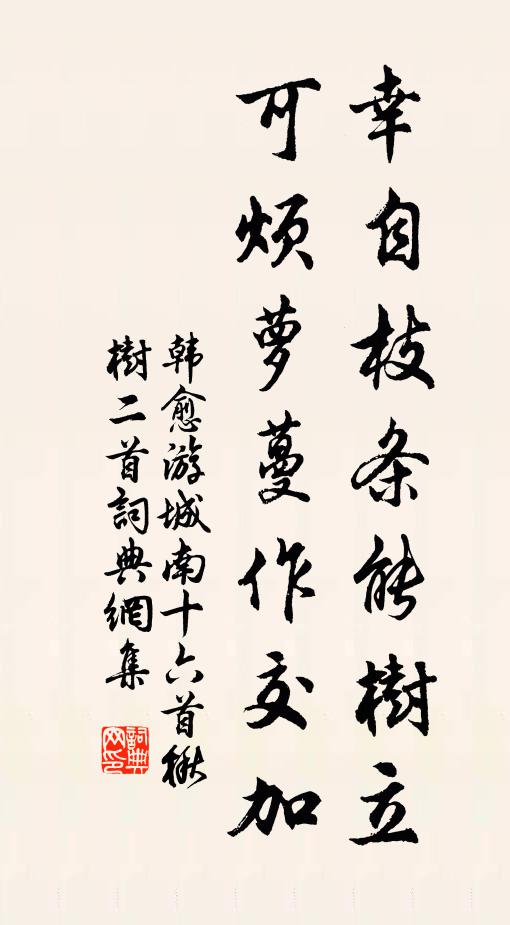 幸自枝条能樹立
可煩夢蔓作交加
韩愈游城南十六首楸
樹二首詞典網集
詞典
网印